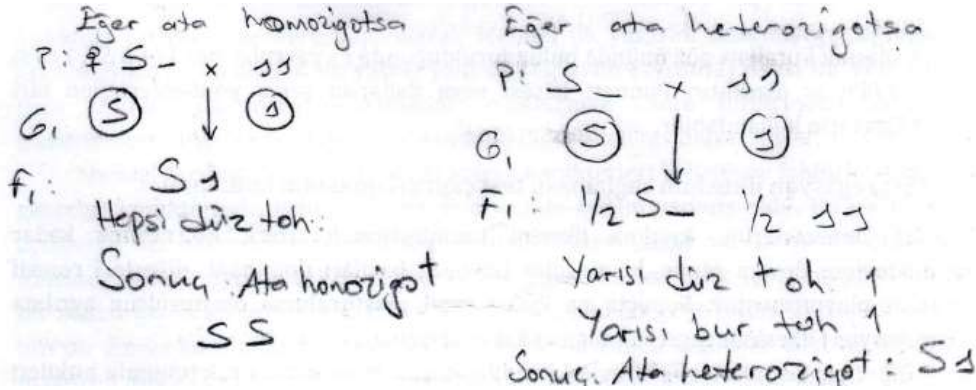 Eğer ata homozigotsa
P: ♀ S – x ss
G1 S s
F1: S s
Hepsi düz toh.
Sonuç: Ata homozigot
SS
Eğer ata heterozigotsa
P: S – x s
G1 S s
F1: 1/2 S– 1/2 ss
Yarısı düz toh. 1
Yarısı bur toh 1
Sonuç: Ata heterozigot: Ss